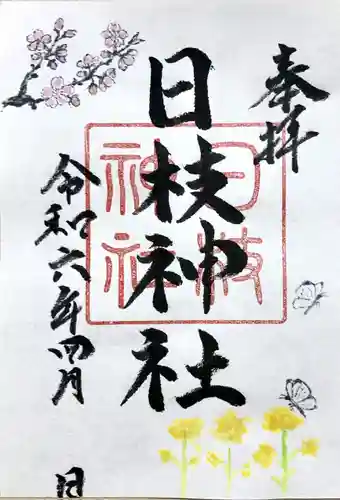 奉拝
日枝神社
日枝神社
令和六年四月 日